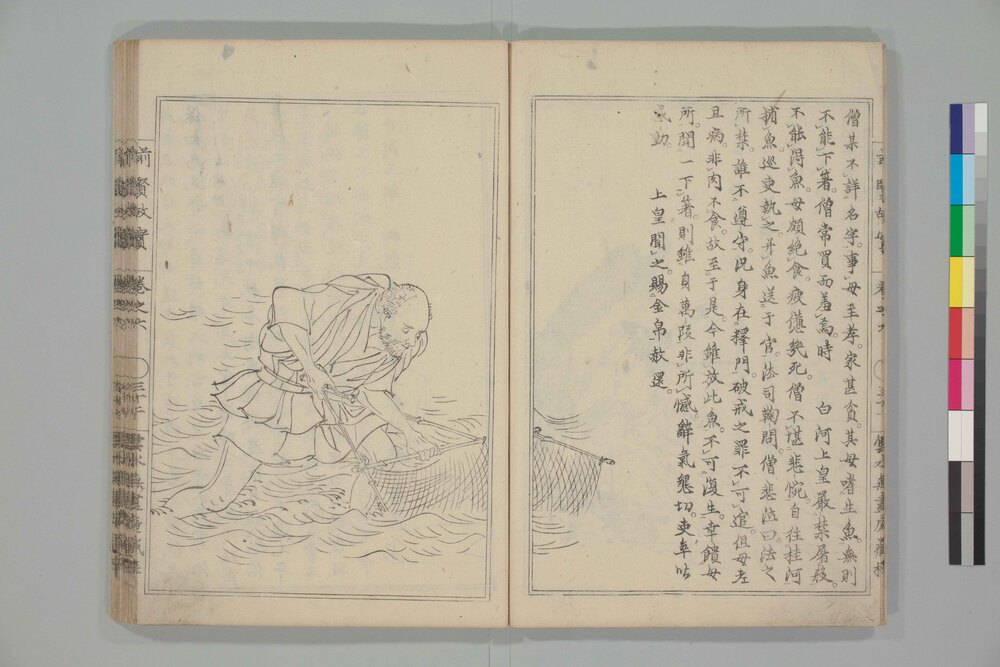 僧某不詳名字。事母至孝。家甚貧。其母嗜生魚無則
不能下箸。僧常買而羞焉。時 白河上皇嚴禁屠殺。
不能得魚。母頗絶食。疲憊幾死。僧不堪悲惋。自往桂河
捕魚。巡吏執之。并魚送于官。法司鞫問。僧悲泣曰。法之
所禁。誰不遵守。況身在釋門。破戒之罪不可逭。但母老
且病。非肉不食。故至于是。今雖放此魚。不可復生。幸饋母
所。聞一下箸。則雖身萬段非所憾。辭氣懇切。吏卒咕
感動。 上皇聞之。賜金帛放還。
前賢故實 卷之六